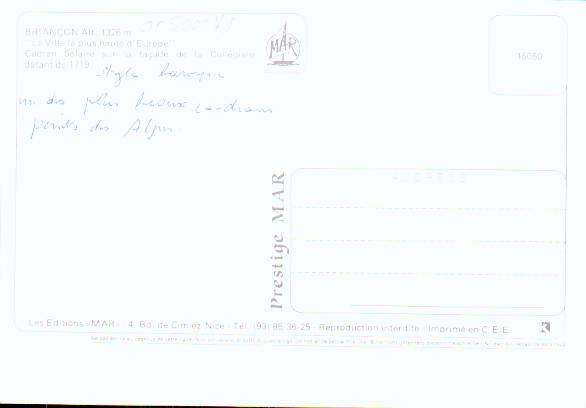 BRIANÇON Alt. 1326 m
"La Ville la plus haute d'Europe"
Cadran Solaire sur la façade de la Collégiale
datant de 1719.
style baroque
un des plus beaux cadrans
peints des Alpes.
MAR
15050
ADDRESS
Prestige MAR
Les Editions «MAR» - 4, Bd. de Cimiez Nice - Tél. (93) 85-36-25 - Reproduction interdite - Imprimé en C.E.E.